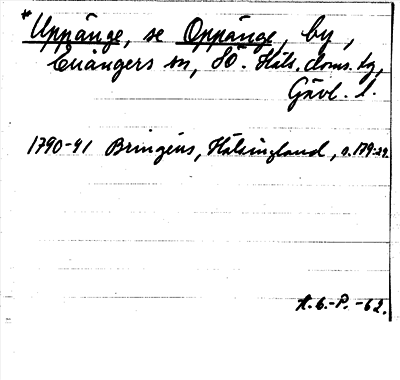 *Uppänge, se Oppänge, by,
Enångers sn, SÖ. Häls. doms. tg,
Gävl. l.
1790-91 Bringéus, Hälsingland, s. 179:29.
H. G.-P. -62.